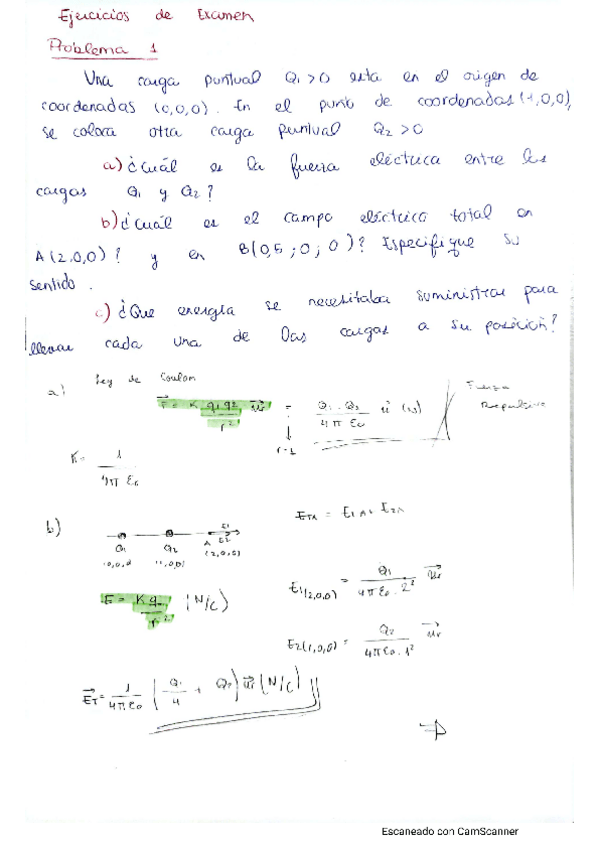 Ejercicios de Examen
Problema 1
Una carga puntual Q₁>0 esta en el origen de
coordenadas (0,0,0). En el punto de coordenadas (1,0,0),
se coloca otra carga puntual Q₂>0
a) ¿Cuál es la fuerza eléctrica entre las
cargas Q₁ y Q₂?
b) ¿Cuál es el campo eléctrico total en
A(2,0,0)? y en B(0,5;0;0)? Especifique su
sentido.
c) ¿Que energía se necesitaba suministrar para
llevar cada una de las cargas a su posición?
a) Ley de Coulon
F = K q₁ q₂ / r² ur = Q₁·Q₂ / 4π ε₀ u (N) Fuerza Repulsiva
r=1
K = 1 / 4π ε₀
b) Q₁ Q₂ A E₁ E₂
(0,0,0) (1,0,0) (2,0,0)
E_TA = E₁A + E₂A
E₁(2,0,0) = Q₁ / 4πε₀·2² ur
E = K q / r² (N/C)
E₂(1,0,0) = Q₂ / 4πε₀·1² ur
E_T = 1 / 4πε₀ (Q₁ / 4 + Q₂) ur (N/C)
Escaneado con CamScanner